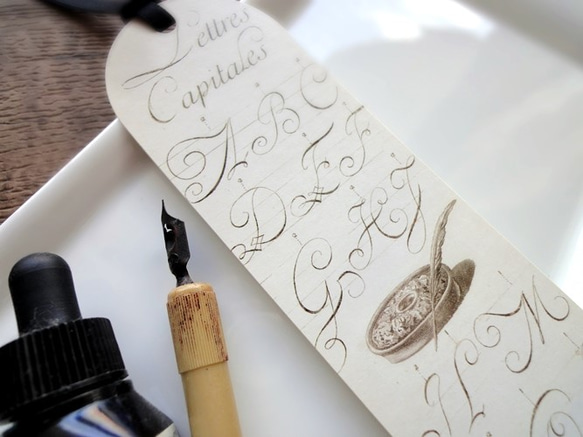 Lettres
Capitales
A B C
D E F
G H J
K L M